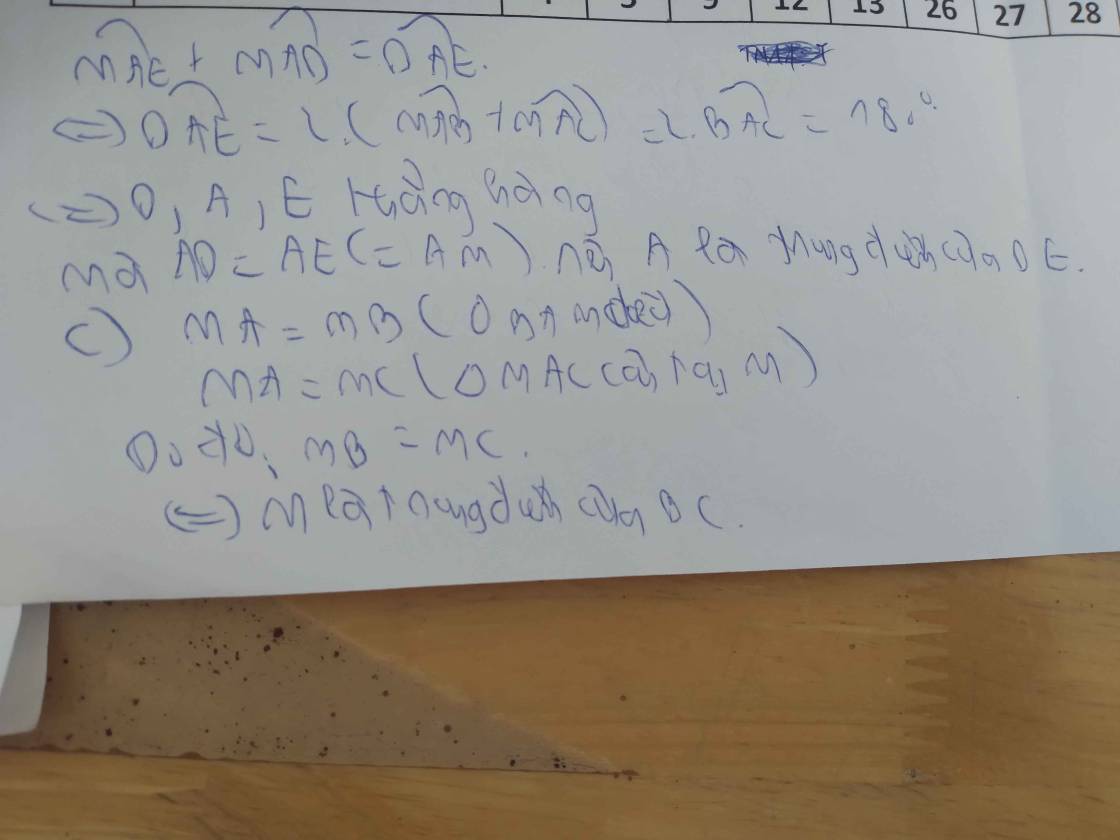 12 13 26 27 28
MAE + MAD = DAE.
<=> DAE = 2.(MAB + MAC) = 2.BAC = 180°
<=> D, A, E thẳng hàng
mà AD = AE (= AM) nên A là trung điểm của DE.
c) MA = MB (Δ BAM đều)
MA = MC (Δ MAC cân tại M)
Do đó, MB = MC.
<=> M là trung điểm của BC.